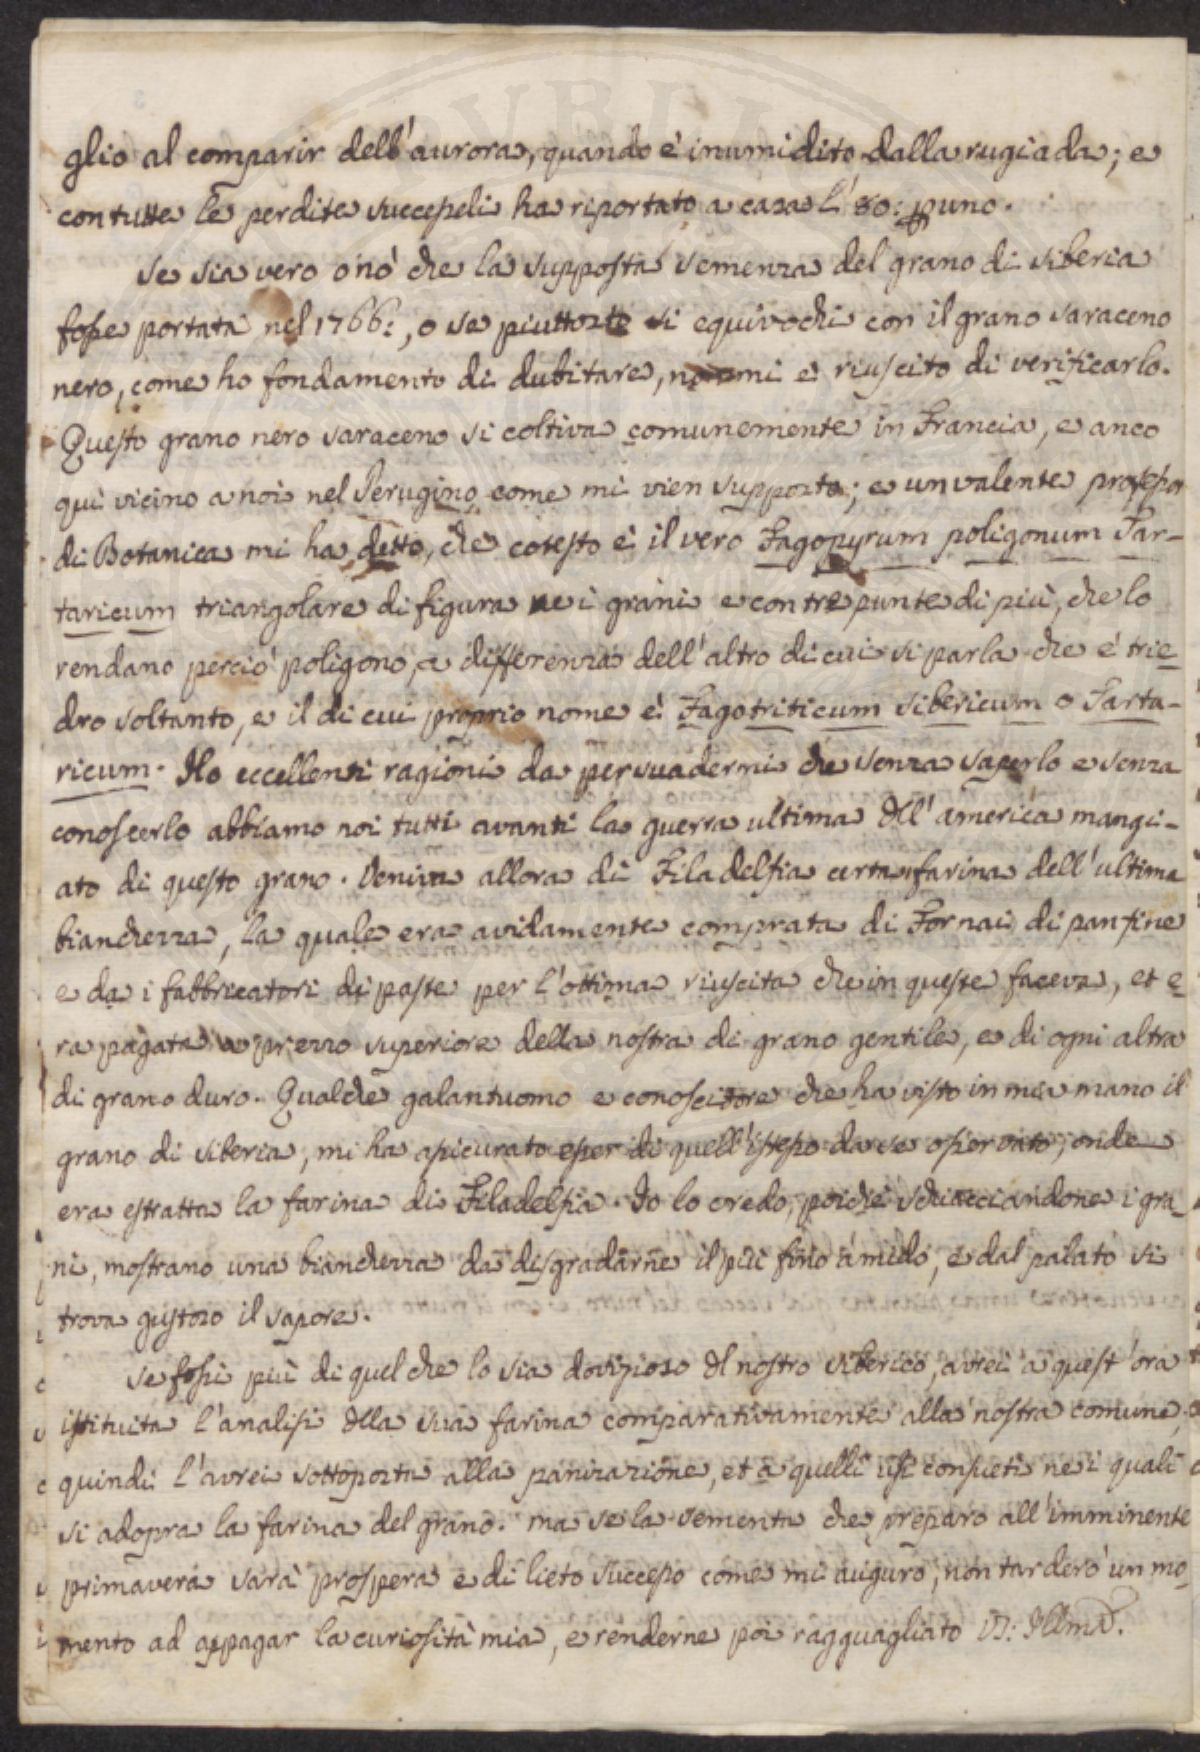 glio al comparir dell'aurora, quando è inumidito dalla rugiada; e
con tutte le perdite successeli ha riportato a casa l'80: p uno.
Se sia vero o nò che la supposta semenza del grano di Siberia
fosse portata nel 1766:, o se piuttosto si equivochi con il grano saraceno
nero, come ho fondamento di dubitare, non mi è riuscito di verificarlo.
Questo grano nero saraceno si coltiva comunemente in Francia, e anco
qui vicino a noi nel Perugino come mi vien supposto; e un valente professor
di Botanica mi ha detto, che cotesto è il vero Fagopyrum poligonum Tar-
taricum triangolare di figura ne i grani e con tre punte di più, che lo
rendano perciò poligono, a differenza dell'altro di cui si parla che è trie
dro soltanto, e il di cui proprio nome è Fagotriticum Sibericum o Tarta-
ricum. Ho eccellenti ragioni da persuadermi che senza saperlo e senza
conoscerlo abbiamo noi tutti avanti la guerra ultima dell'america mangi-
ato di questo grano. Veniva allora di Filadelfia certa farina dell'ultima
bianchezza, la quale era avidamente comprata di Fornai di pan fine
e da i fabbricatori di paste per l'ottima riuscita che in queste faceva, et e
ra pagata a prezzo superiore della nostra di grano gentile, e di ogni altra
di grano duro. Qualche galantuomo e conoscitore che ha visto in mia mano il
grano di Siberia, mi ha assicurato esser di quell'istesso da se osservato, onde
era estratta la farina di Filadelfia. Io lo credo, poichè schiacciandone i gra
ni, mostrano una bianchezza da disgradarne il più fino amido, e dal palato si
trova gustoso il sapore.
Se fossi più di quel che lo sia dovizioso del nostro Siberico, avrei a quest'ora
istituita l'analisi della sua farina comparativamente alla nostra comune,
quindi l'avrei sottoposta alla panizazione, et a quelli usi consueti ne i quali
si adopra la farina del grano. ma se la sementa che preparo all'imminente
primavera sarà prospera e di lieto successo come mi auguro, non tarderò un mo
mento ad appagar la curiosità mia, e renderne poi ragguagliato VS: Illma.